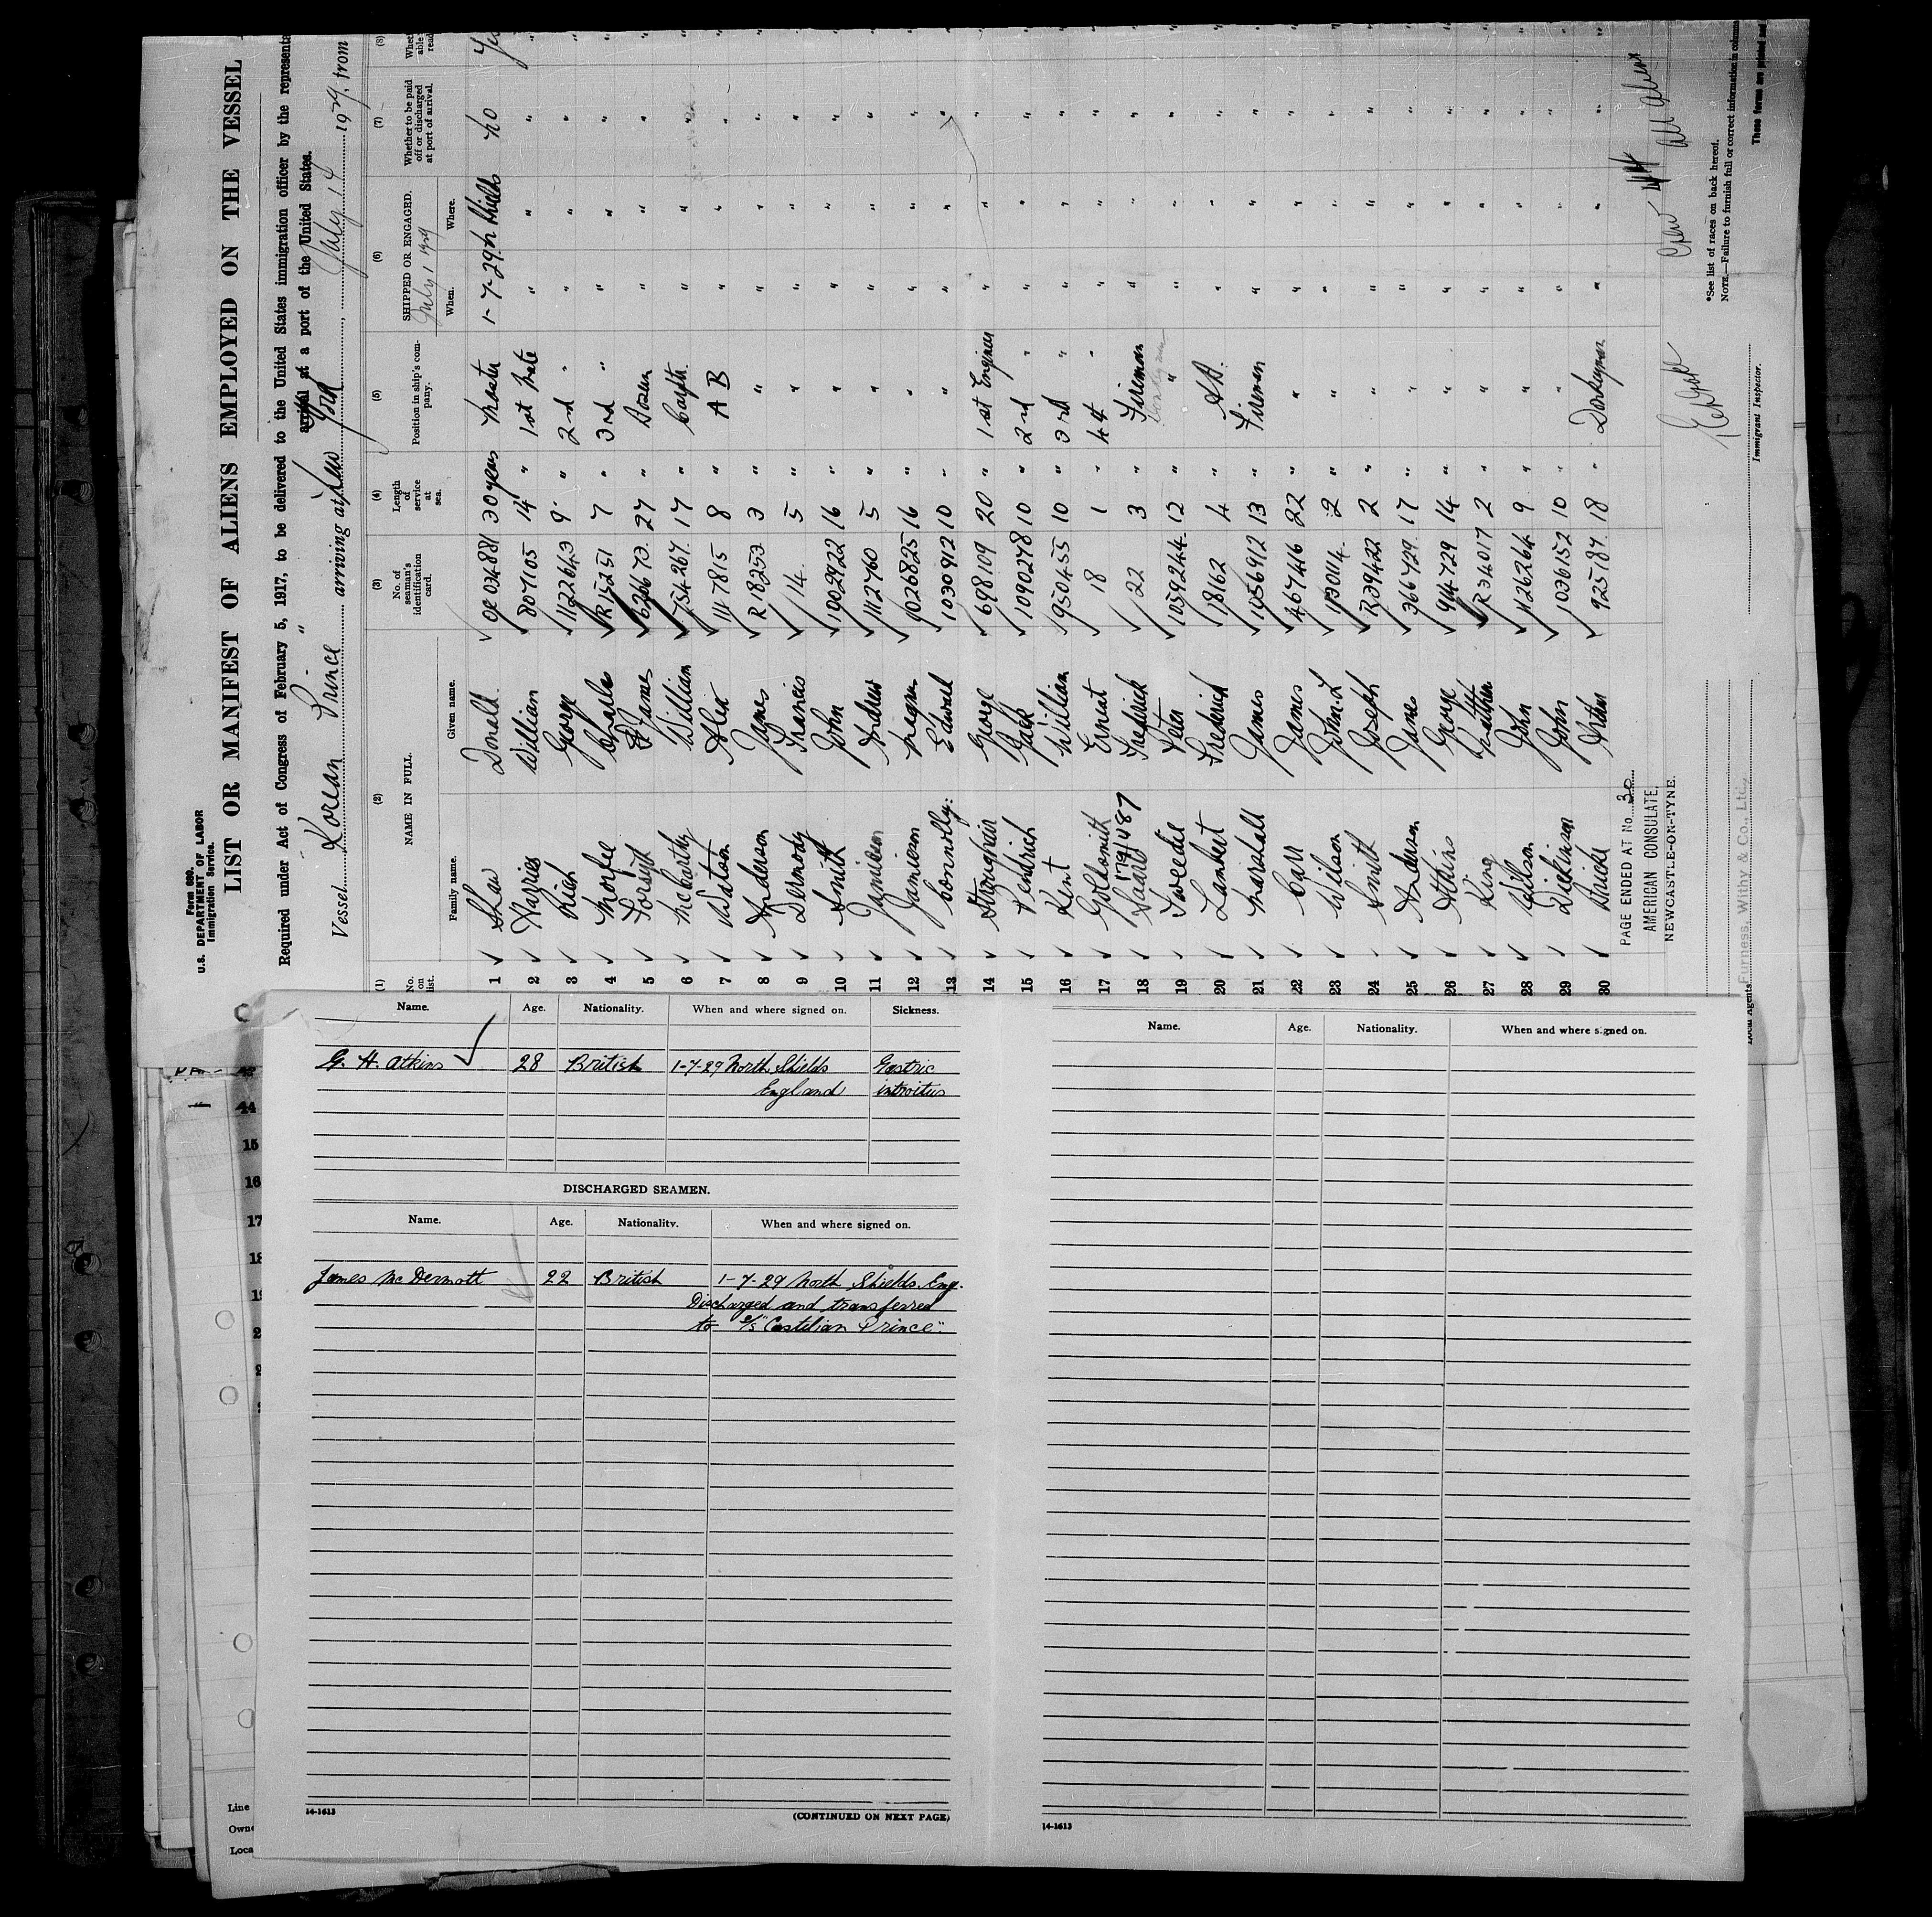 Form 680.
U.S. DEPARTMENT OF LABOR
Immigration Service.
LIST OR MANIFEST OF ALIENS EMPLOYED ON THE VESSEL
Required under Act of Congress of February 5, 1917, to be delivered to the United States immigration officer by the representa
arrival at a port of the United States.
Vessel Korean Prince arriving at New York, July 14 1929, from
(1) (2) (3) (4) (5) (6) (7) (8)
No. on list. NAME IN FULL No. of seaman's identification card. Length of service at sea. Position in ship's company. SHIPPED OR ENGAGED. Whether to be paid off or discharged at port of arrival.
July 1 1929
Family name. Given name. When. Where.
1 Shaw Donald 30 years Master 1-7-29 N Shields no
2 William 807105 14 " 1st Mate " " "
3 Rich George 1122643 9 " 2nd " " " "
4 Morfee Charles R15251 7 " 3rd " " " "
5 Forsyth James 27 " Bosun " " "
6 McCarthy William 754267 17 " " " "
7 Watson Alex 1117815 8 " A B " " "
8 Anderson James R18253 3 " " " " "
9 Dermody Francis 14 5 " " " " "
10 Smith John 1002922 16 " " " " "
11 Jamieson Andrew 1112760 5 " " " " "
12 Jamieson Magnus 9026825 16 " " " " "
13 Connolly Edward 1030912 10 " " " " "
14 Straughair George 698109 20 " 1st Engineer " " "
15 Jack 1090278 10 " 2nd " " " "
16 Kent William 950455 10 " 3rd " " " "
17 Goldsmith Ernest 18 1 " 4th " " " "
18 1791487 Frederick 22 3 " Fireman " " "
19 Tweedie Peter 1059244 12 " " " " "
20 Lambert Frederick 18162 4 " " " "
21 Marshall James 1056912 13 " Fireman " " "
22 Carr James 467416 22 " " " " "
23 Wilson John. L 2 " " " " "
24 Smith Joseph R39422 2 " " " " "
25 Anderson 366729 17 " " " " "
26 Atkins George 914729 14 " " " " "
27 King R34017 2 " " " " "
28 Wilson John 1126264 9 " " " " "
29 Dickinson John 1036152 10 " " " " "
30 Arthur 925187 18 " Donkeyman " " "
PAGE ENDED AT No. 30
AMERICAN CONSULATE,
NEWCASTLE-ON-TYNE.
Crew 44 all aliens
Furness, Withy & Co., Ltd.,
Local Agents
Immigrant Inspector.
*See list of races on back hereof.
NOTE.—Failure to furnish full or correct information in column
These forms are printed and
Name. Age. Nationality. When and where signed on. Sickness.
G. H. Atkins 28 British 1-7-29 North Shields Gastric
England
DISCHARGED SEAMEN.
Name. Age. Nationality. When and where signed on.
James McDermott 22 British 1-7-29 North Shields Eng.
Discharged and transferred
to S/S "Castilian Prince".
14-1613
(CONTINUED ON NEXT PAGE)
Name. Age. Nationality. When and where signed on.
14-1613
44
15
16
17
18
Line
Owne
Loca